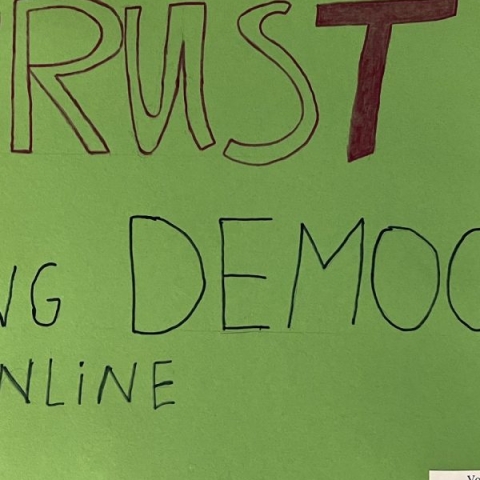 RUST
NG DEMOC
NLiNE